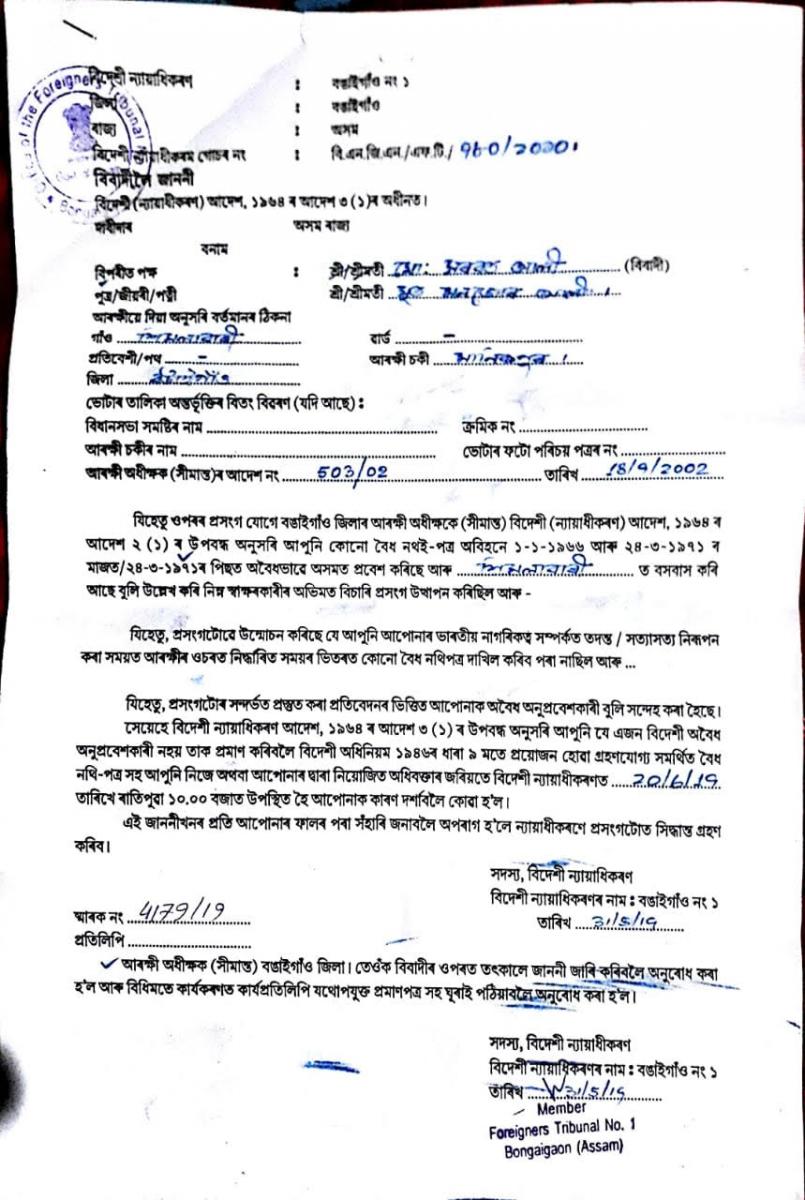 Office of the Foreigners Tribunal
বিদেশী ন্যায়াধিকৰণ : বঙাইগাঁও নং ১
জিলা : বঙাইগাঁও
ৰাজ্য : অসম
বিদেশী ন্যায়াধীকৰণ গোচৰ নং : বি.এন.জি.এন./এফ.টি./
বিবাদীলৈ জাননী
বিদেশী (ন্যায়াধীকৰণ) আদেশ, ১৯৬৪ ৰ আদেশ ৩ (১)ৰ অধীনত।
অসম ৰাজ্য
বনাম
বিপৰীত পক্ষ : শ্ৰী/শ্ৰীমতী মোঃ আলী (বিবাদী)
পুত্ৰ/জীয়ৰী/পত্নী শ্ৰী/শ্ৰীমতী মৃত আলী।
আৰক্ষীয়ে দিয়া অনুসৰি বৰ্তমানৰ ঠিকনা
গাঁও ৱাৰ্ড –
প্ৰতিবেশী/পথ – আৰক্ষী চকী মানিকপুৰ।
জিলা বঙাইগাঁও
ভোটাৰ তালিকা অন্তৰ্ভূক্তিৰ বিতং বিৱৰণ (যদি আছে) :
বিধানসভা সমষ্টিৰ নাম ক্ৰমিক নং
আৰক্ষী চকীৰ নাম ভোটাৰ ফটো পৰিচয় পত্ৰৰ নং
আৰক্ষী অধীক্ষক (সীমান্ত)ৰ আদেশ নং 503/02 তাৰিখ 18/9/2002
যিহেতু ওপৰৰ প্ৰসংগ যোগে বঙাইগাঁও জিলাৰ আৰক্ষী অধীক্ষকে (সীমান্ত) বিদেশী (ন্যায়াধীকৰণ) আদেশ, ১৯৬৪ ৰ
আদেশ ২ (১) ৰ উপবন্ধ অনুসৰি আপুনি কোনো বৈধ নথই-পত্ৰ অবিহনে ১-১-১৯৬৬ আৰু ২৪-৩-১৯৭১ ৰ
মাজত/২৪-৩-১৯৭১ৰ পিছত অবৈধভাৱে অসমত প্ৰবেশ কৰিছে আৰু ত বসবাস কৰি
আছে বুলি উল্লেখ কৰি নিম্ন স্বাক্ষৰকাৰীৰ অভিমত বিচাৰি প্ৰসংগ উত্থাপন কৰিছিল আৰু -
যিহেতু, প্ৰসংগটোৱে উন্মোচন কৰিছে যে আপুনি আপোনাৰ ভাৰতীয় নাগৰিকত্ব সম্পৰ্কত তদন্ত / সত্যাসত্য নিৰূপন
কৰা সময়ত আৰক্ষীৰ ওচৰত নিৰ্দ্ধাৰিত সময়ৰ ভিতৰত কোনো বৈধ নথিপত্ৰ দাখিল কৰিব পৰা নাছিল আৰু ...
যিহেতু, প্ৰসংগটোৰ সন্দৰ্ভত প্ৰস্তুত কৰা প্ৰতিবেদনৰ ভিত্তিত আপোনাক অবৈধ অনুপ্ৰবেশকাৰী বুলি সন্দেহ কৰা হৈছে।
সেয়েহে বিদেশী ন্যায়াধিকৰণ আদেশ, ১৯৬৪ ৰ আদেশ ৩ (১) ৰ উপবন্ধ অনুসৰি আপুনি যে এজন বিদেশী অবৈধ
অনুপ্ৰবেশকাৰী নহয় তাক প্ৰমাণ কৰিবলৈ বিদেশী অধিনিয়ম ১৯৪৬ৰ ধাৰা ৯ মতে প্ৰয়োজন হোৱা গ্ৰহণযোগ্য সমৰ্থিত বৈধ
নথি-পত্ৰ সহ আপুনি নিজে অথবা আপোনাৰ দ্বাৰা নিয়োজিত অধিবক্তাৰ জৰিয়তে বিদেশী ন্যায়াধীকৰণত 20/6/19
তাৰিখে ৰাতিপুৱা ১০.০০ বজাত উপস্থিত হৈ আপোনাক কাৰণ দৰ্শাবলৈ কোৱা হ'ল।
এই জাননীখনৰ প্ৰতি আপোনাৰ ফালৰ পৰা সঁহাৰি জনাবলৈ অপৰাগ হ'লে ন্যায়াধীকৰণে প্ৰসংগটোত সিদ্ধান্ত গ্ৰহণ
কৰিব।
সদস্য, বিদেশী ন্যায়াধিকৰণ
বিদেশী ন্যায়াধীকৰণৰ নাম : বঙাইগাঁও নং ১
তাৰিখ 31/5/19
স্মাৰক নং 4179/19
প্ৰতিলিপি
আৰক্ষী অধীক্ষক (সীমান্ত) বঙাইগাঁও জিলা। তেওঁক বিবাদীৰ ওপৰত তৎকালে জাননী জাৰি কৰিবলৈ অনুৰোধ কৰা
হ'ল আৰু বিধিমতে কাৰ্যকৰণত কাৰ্যপ্ৰতিলিপি যথোপযুক্ত প্ৰমাণপত্ৰ সহ ঘূৰাই পঠিয়াবলৈ অনুৰোধ কৰা হ'ল।
সদস্য, বিদেশী ন্যায়াধীকৰণ
বিদেশী ন্যায়াধিকৰণৰ নাম : বঙাইগাঁও নং ১
তাৰিখ 31/5/19
Member
Foreigners Tribunal No. 1
Bongaigaon (Assam)